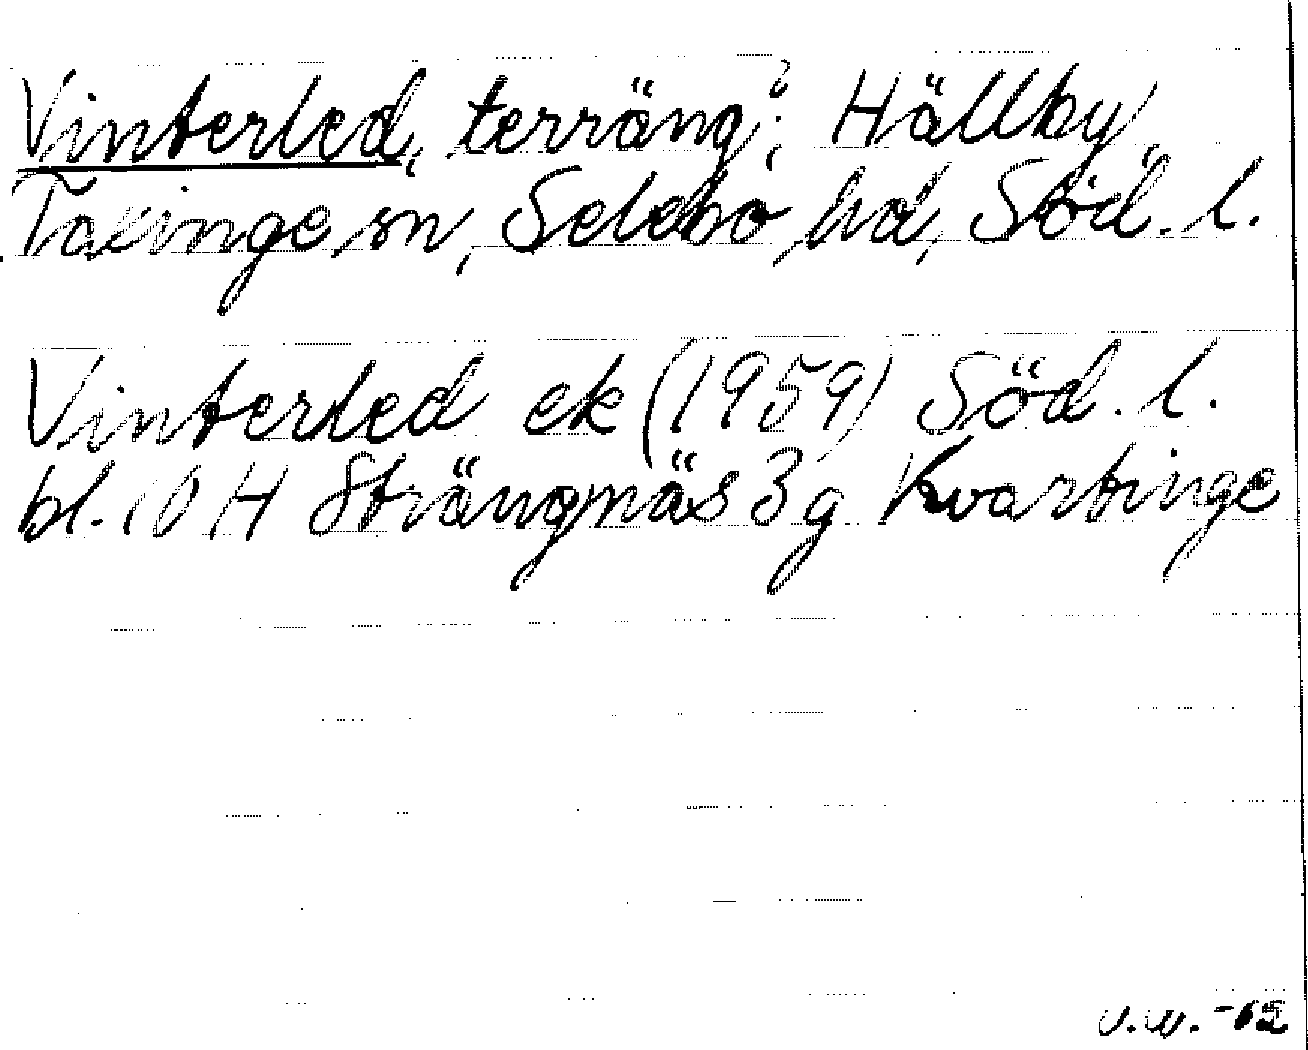 Vinterled, terräng?, Hällby,
Taxinge sn, Selebo hd, Söd. l.
Vinterled ek (1959) Söd. l.
bl. 10 H Strängnäs 3 g Kvartinge
U.W. -62